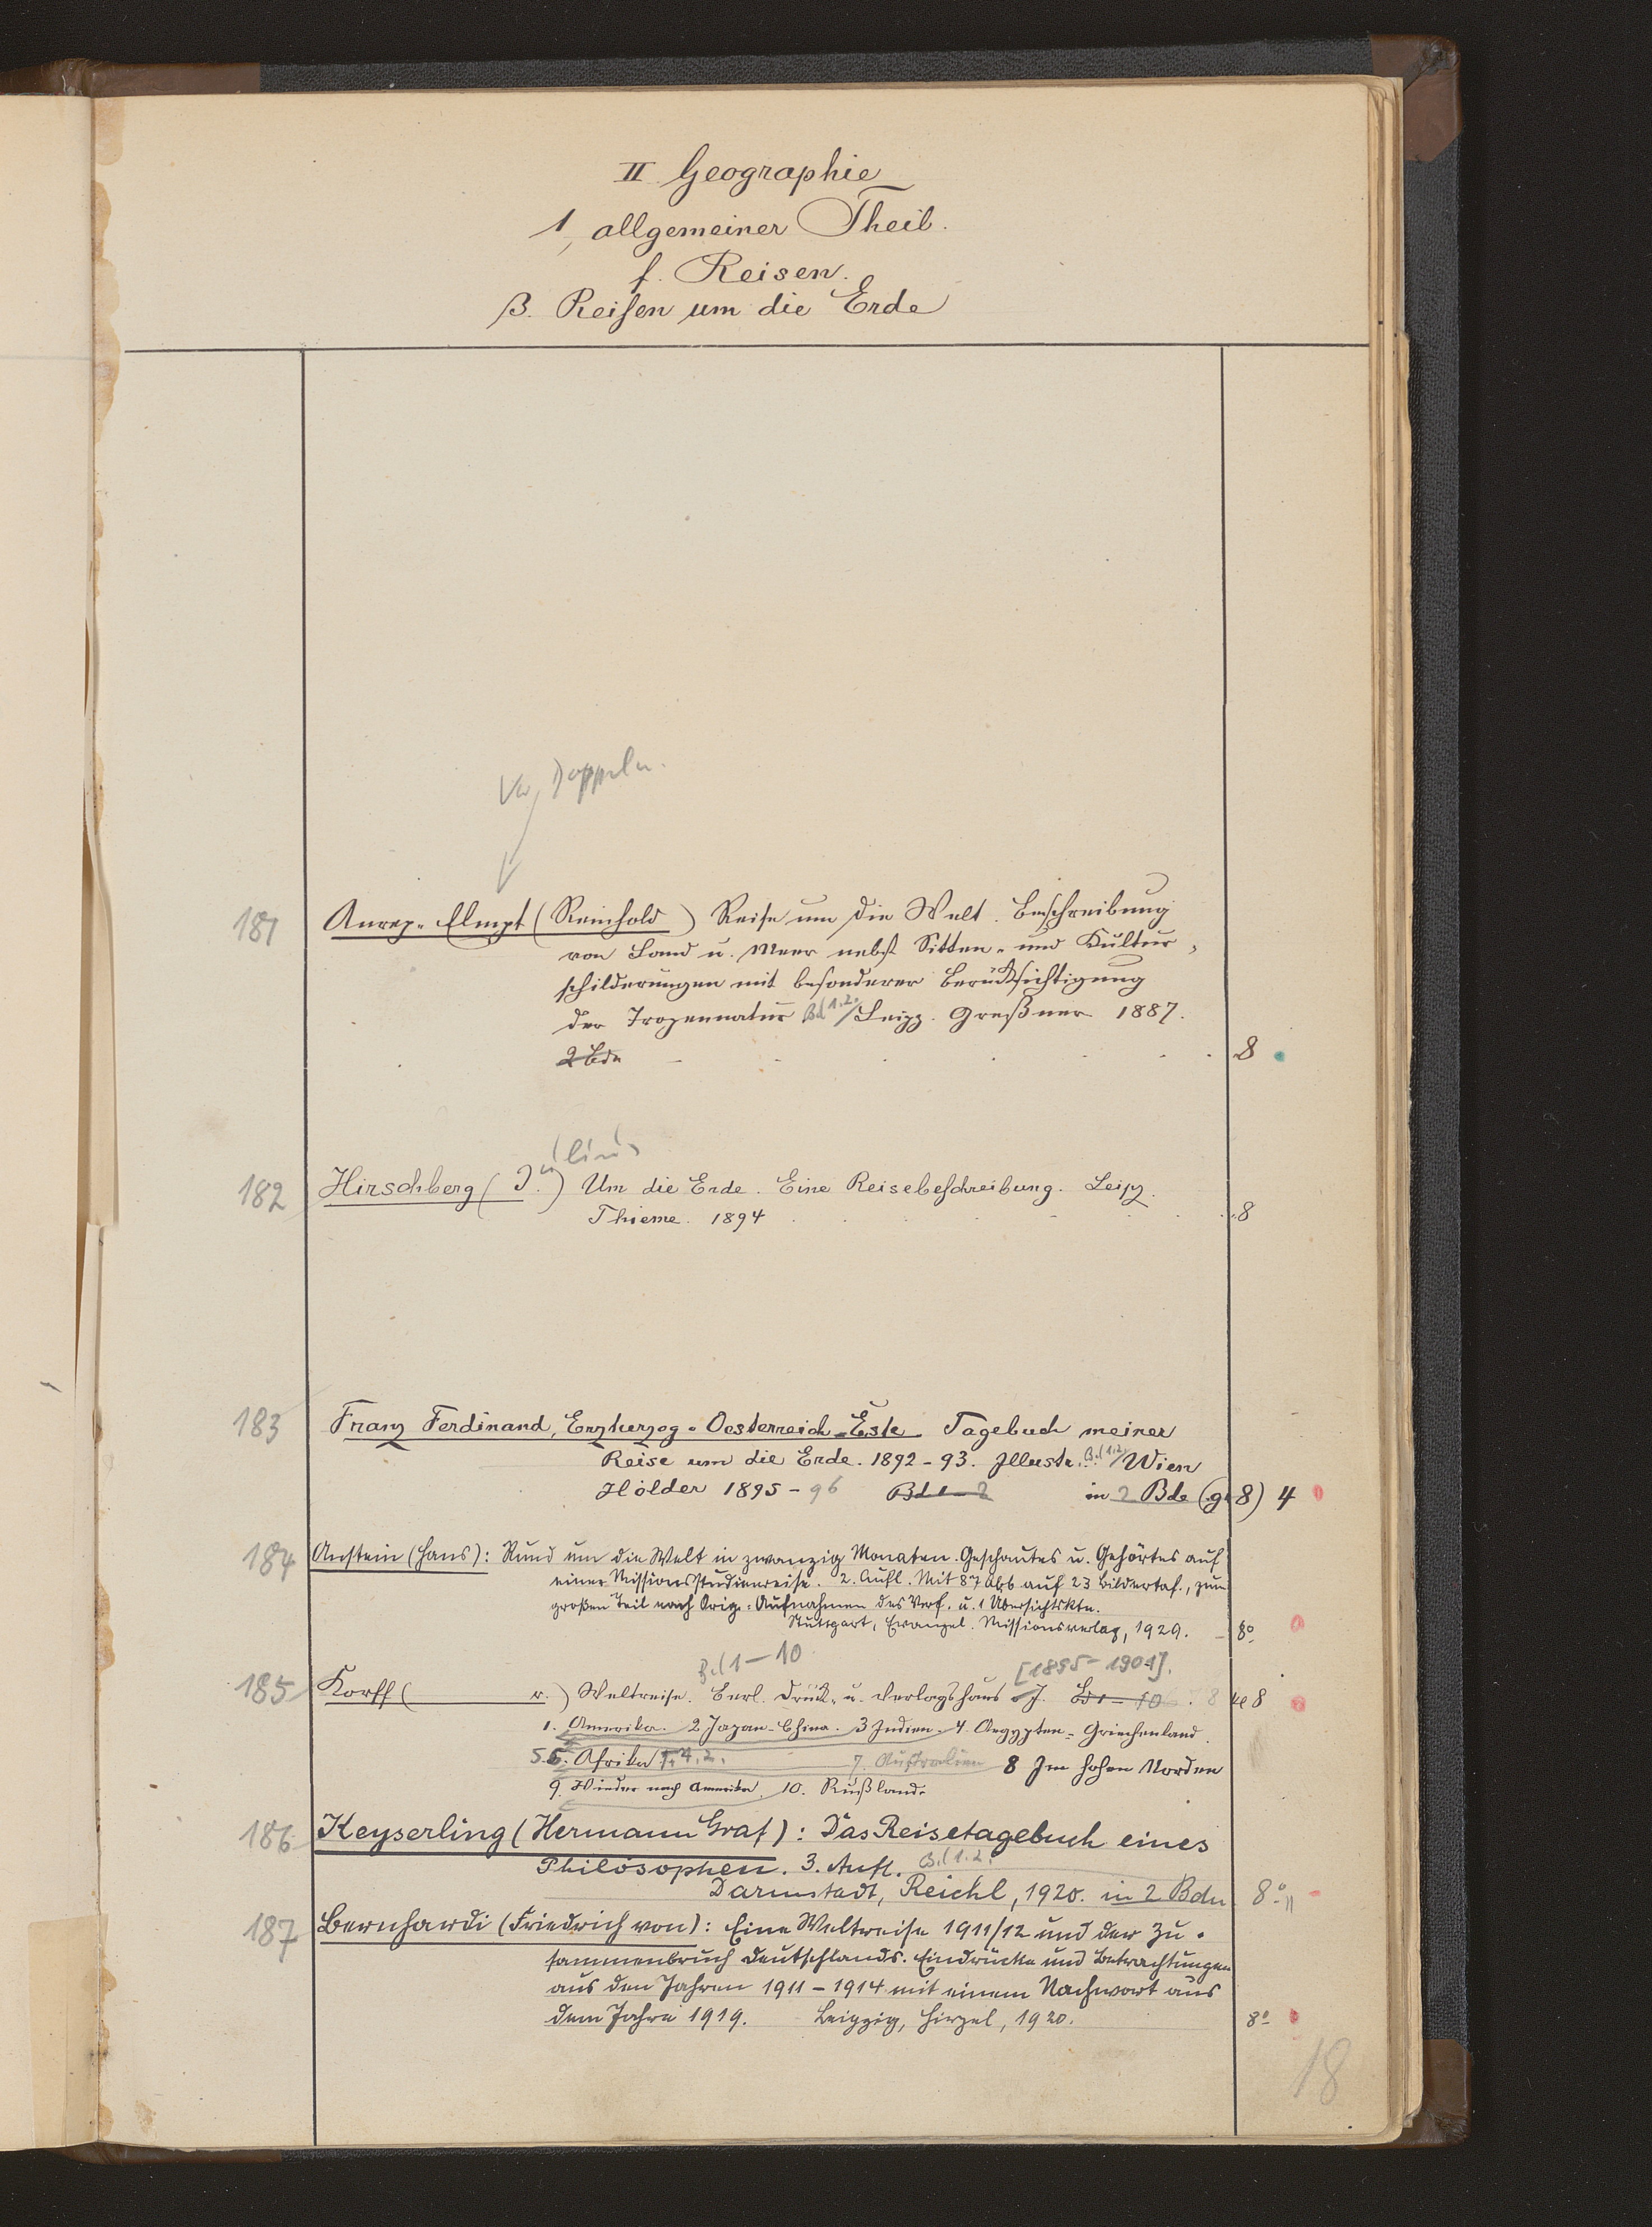 II Geographie
1, allgemeiner Theil.
f. Reisen.
β. Reisen um die Erde
181 Anrep-Elmpt (Reinhold) Reise um die Welt. Beschreibung
von Land u. Meer nebst Sitten- und Kultur-
schilderungen mit besonderer Berücksichtigung
der Tropennatur Bd 1.2. / Leipz. Greßner 1887.
2 Bde 8
182 Hirschberg (J.) Um die Erde. Eine Reisebeschreibung. Leipz.
Thieme. 1894 8
183 Franz Ferdinand, Erzherzog-Oesterreich-Este Tagebuch meiner
Reise um die Erde. 1892-93. Illustr. Bd 1.2 / Wien
Hölder 1895-96 Bd 1-2 in 2 Bde (gr 8) 4
184 Anstein (Hans): Rund um die Welt in zwanzig Monaten. Geschautes u. Gehörtes auf
einer Missionsstudienreise. 2. Aufl. Mit 87 Abb auf 23 Bildertaf., zum
großen Teil nach Orig.-Aufnahmen des Verf. u. 1 Übersichtskte.
Stuttgart, Evangel. Missionsverlag, 1929. 8º
Bd 1-10 [1895-1901].
185 Korff ( v.) Weltreise. Berl. Druck- u. Verlagshaus o J. Bd 1-10 8
1. Amerika. 2 Japan-China. 3 Indien. 4. Aegypten-Griechenland.
5.6. Afrika 7. Australien 8 Im hohen Norden
9. Wieder nach Amerika. 10. Rußland.
186 Keyserling (Hermann Graf): Das Reisetagebuch eines
Philosophen. 3. Aufl. Bd 1.2.
Darmstadt, Reichl, 1920. in 2 Bdn 8º
187 Bernhardi (Friedrich von): Eine Weltreise 1911/12 und der Zu-
sammenbruch Deutschlands. Eindrücke und Betrachtungen
aus den Jahren 1911-1914 mit einem Nachwort aus
dem Jahre 1919. Leipzig, Hirzel, 1920. 8º
18